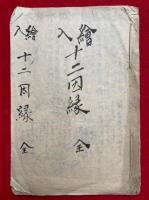 繪入 十二因縁 全
繪入 十二因縁 全